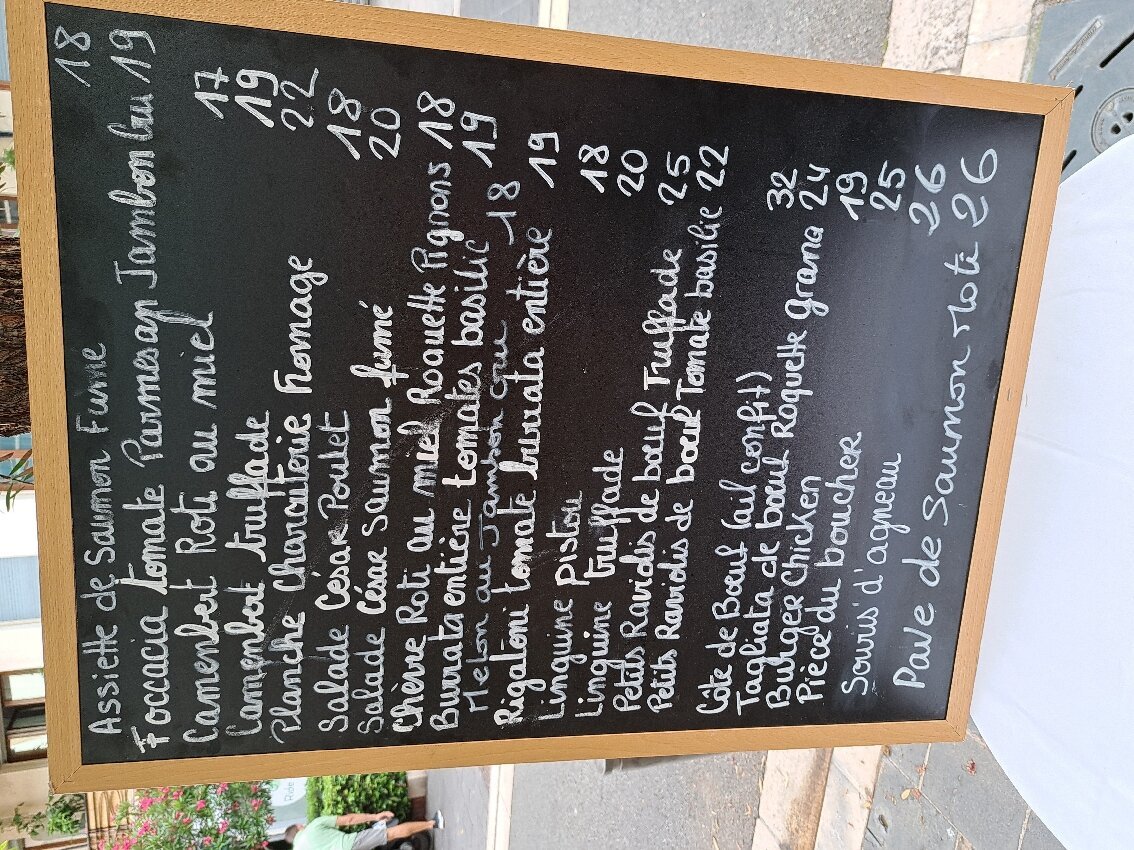 Assiette de Saumon Fumé 18
Foccacia tomate Parmesan Jambon cru 19
Camembert Roti au miel 17
Camembert truffade 19
Planche Charcuterie Fromage 22
Salade César Poulet 18
Salade César Saumon fumé 20
Chèvre Roti au miel Roquette Pignons 18
Burrata entière tomates basilic 19
Melon au Jambon cru 18
Rigatoni tomate burrata entière 19
Linguine pistou 18
Linguine truffade 20
Petits Raviolis de bœuf Truffade 25
Petits Raviolis de bœuf Tomate basilic 22
Côte de Bœuf (ail confit) 32
Tagliata de bœuf Roquette grana 24
Burger Chicken 19
Pièce du boucher 25
Souris d'agneau 26
Pavé de Saumon roti 26